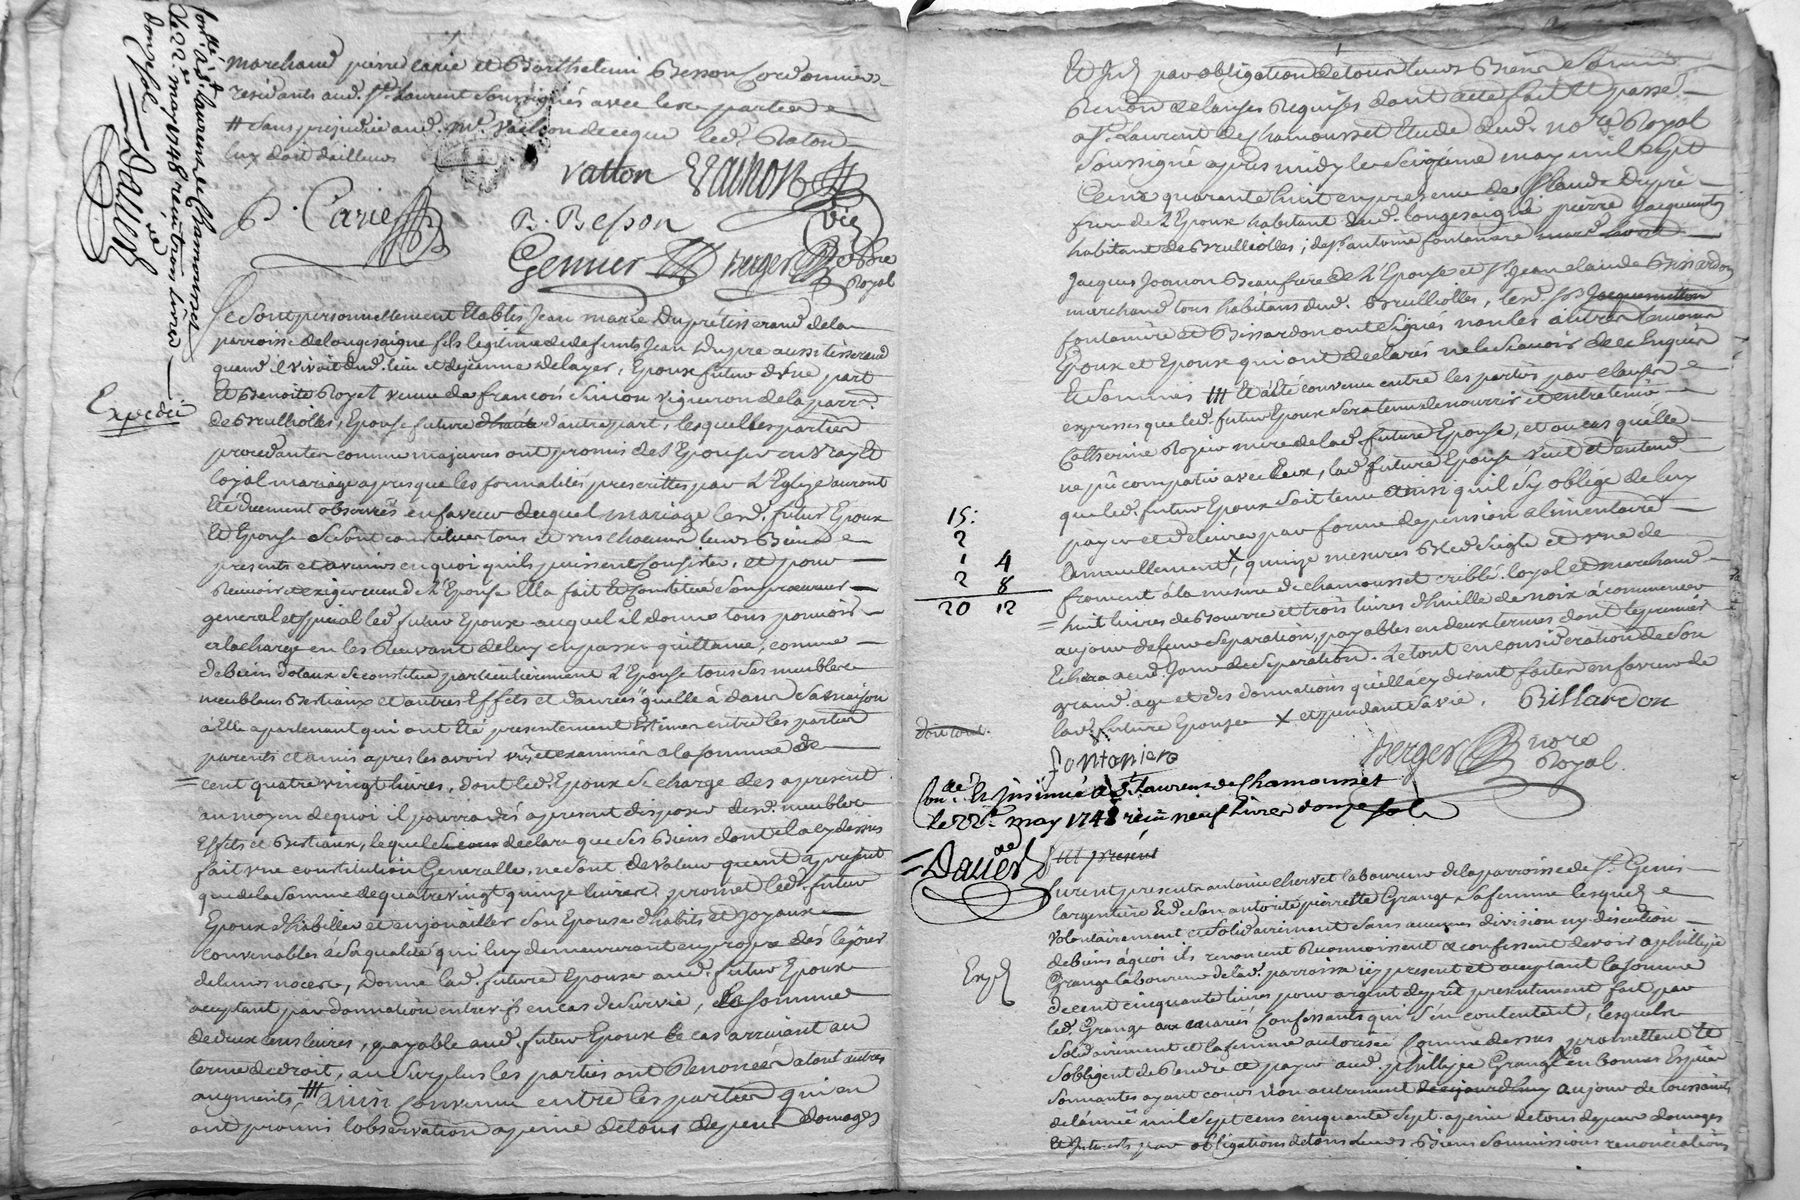 marchand pierre Carie et Barthelemi Besson Cordonnier
residants aud. St. Laurent soussignés avec les parties
# sans prejudice aud. Mr. Vachon de ce que led. Ratton
luy doit d'ailleurs
Ratton Vachon
P. Carie B. Besson
Gennier Berger nore
Royal
Conllé à St. Laurent de Chamousset
le 22e may 1748 reçu trois livres
douze sols
Daverede
Expedié
Se sont personnellement Etablis Jean marie Dupré tisserand de la
parroisse de longesaigne fils legitime de defunts Jean Dupre aussi tisserand
quand il vivoit dud. lieu et de jeanne Delayer, Epoux futur d'vne part
Et Benoite Royet veuve de françois Simon vigneron de la parr.
de Brulliolles, Epouse future d'autre part, lesquelles parties
procedantes comme majeures ont promis de s'Epouser en vray Et
loyal mariage apres que les formalités prescrittes par l'Eglize auront
Eté duement observées en faveur duquel mariage lesd. futur Epoux
Et Epouse se sont constitués tous et vns chacuns leurs Biens
presents et avenirs en quoi qu'ils puissent Consister, et pour
Recevoir et exiger ceux de l'Epouse Ella fait Et Constitué son procureur
general et special led. futur Epoux auquel il donne tous pouvoirs
a la charge en les Recevant de luy en passer quittance, comme
de biens dotaux se constitue particulierement l'Epouse tous ses meubles
meublans Bestiaux et autres Effets et danrées qu'elle à dans sa maison
à Elle apartenant qui ont Eté presentement Estimés entre les parties
parents et amis apres les avoir vû et examinés a la somme de
= cent quatre vingt livres, dont led. Epoux se charge des apresent
au moyen de quoi il pourra dés apresent disposer desd. meubles
Effets et Bestiaux, lequel declare que ses Biens dont il a cy dessus
fait vne constitution Generalle, ne sont de valeur quant apresent
que de la somme de quatre vingt quinze livres, promet led. futur
Epoux d'habiller et enjoailler son Epouse d'habits et joyaux
convenables à sa qualité qui luy demeureront en propre dés le jour
de leurs noces, Donne lad. future Epouse aud. futur Epoux
acceptant par donnation entre vifs en cas de survie, la somme
de deux cens livres, payable aud. futur Epoux le cas arrivant au
terme de droit, au surplus les parties ont Renoncé a tout autres
augments, ### ainsi Convenu entre les parties qui en
ont promis l'observation a peine de tous depens domages
Et Intts. par obligation de tous leurs Biens soumissions
Renonon. et clauses Requises dont acte fait Et passé
a St. Laurent de Chamousset Etude dud. nore Royal
soussigné apres midy le seizieme may mil sept
Cens quarante huit en presence de Claude Dupré
frere de l'Epoux habitant dud. longesaigne pierre
habitant de Brulliolles; de Sr. antoine fontaniere
Jacques Joanon Beaufrere de l'Epouse et Sr. Jean claude Bissardon
marchand tous habitans dud. Brulliolles, lesd. Srs.
fontaniere et Bissardon ont signés non les autres
Epoux et Epouse qui ont declarés ne le sçavoir de ce Enquis
Et sommés ### Et a été convenu entre les parties par clause
expresse que led. futur Epoux sera tenu de nourrir et entretenir
Catherine Rozier mere de lad. future Epouse, et au cas qu'elle
ne pû compatir avec Eux, lad. future Epouse veut et entend
que led. futur Epoux soit tenu ainsi qu'il s'y oblige de luy
payer et delivrer par forme de pension alimentaire
annuellement X, quinze mesures Bled seigle et vne de
froment à la mesure de chamousset criblé loyal et marchand
= huit livres de Beurre et trois livres d'huille de noix à commencer
au jour de leur separation, payables en deux termes dont le premier
Echera aud. Jour de separation. Le tout en consideration de son
grand age et des donnations qu'elle a cy devant faites en faveur de
lad. future Epouse X et pendant sa vie. Billardon
15:
2
1 4
2 8
20 12
fontaniere Berger nore
Royal
Conllé Et Insinué à St. Laurent de Chamousset
le 22e may 1748 reçu neuf livres douze sols
= Daverede
furent presents antoine chervet laboureur de la parroisse de St. Genis
l'argentiere Et de son autorité pierrette Grange sa femme lesquels
volontairement et solidairement sans aucune division ny discution
de biens a quoi ils renoncent Reconnoissent et confessent devoir a philippe
Expé
Grange laboureur de lad. parroisse icy present et acceptant la somme
de cent cinquante livres pour argent de prêt presentement fait par
led. Grange aux mariés Confessants qui s'en contentent, lesquels
solidairement et la femme autorisée somme dessus, promettent Et
s'obligent de Rendre et payer aud. philippe Grange en bonnes Espèces
sonnantes ayant cours non autrement au jour de toussaints
de l'année mil sept cens cinquante sept a peine de tous depens domages
Et Interets par obligations de tous leurs Biens soumissions renonciations